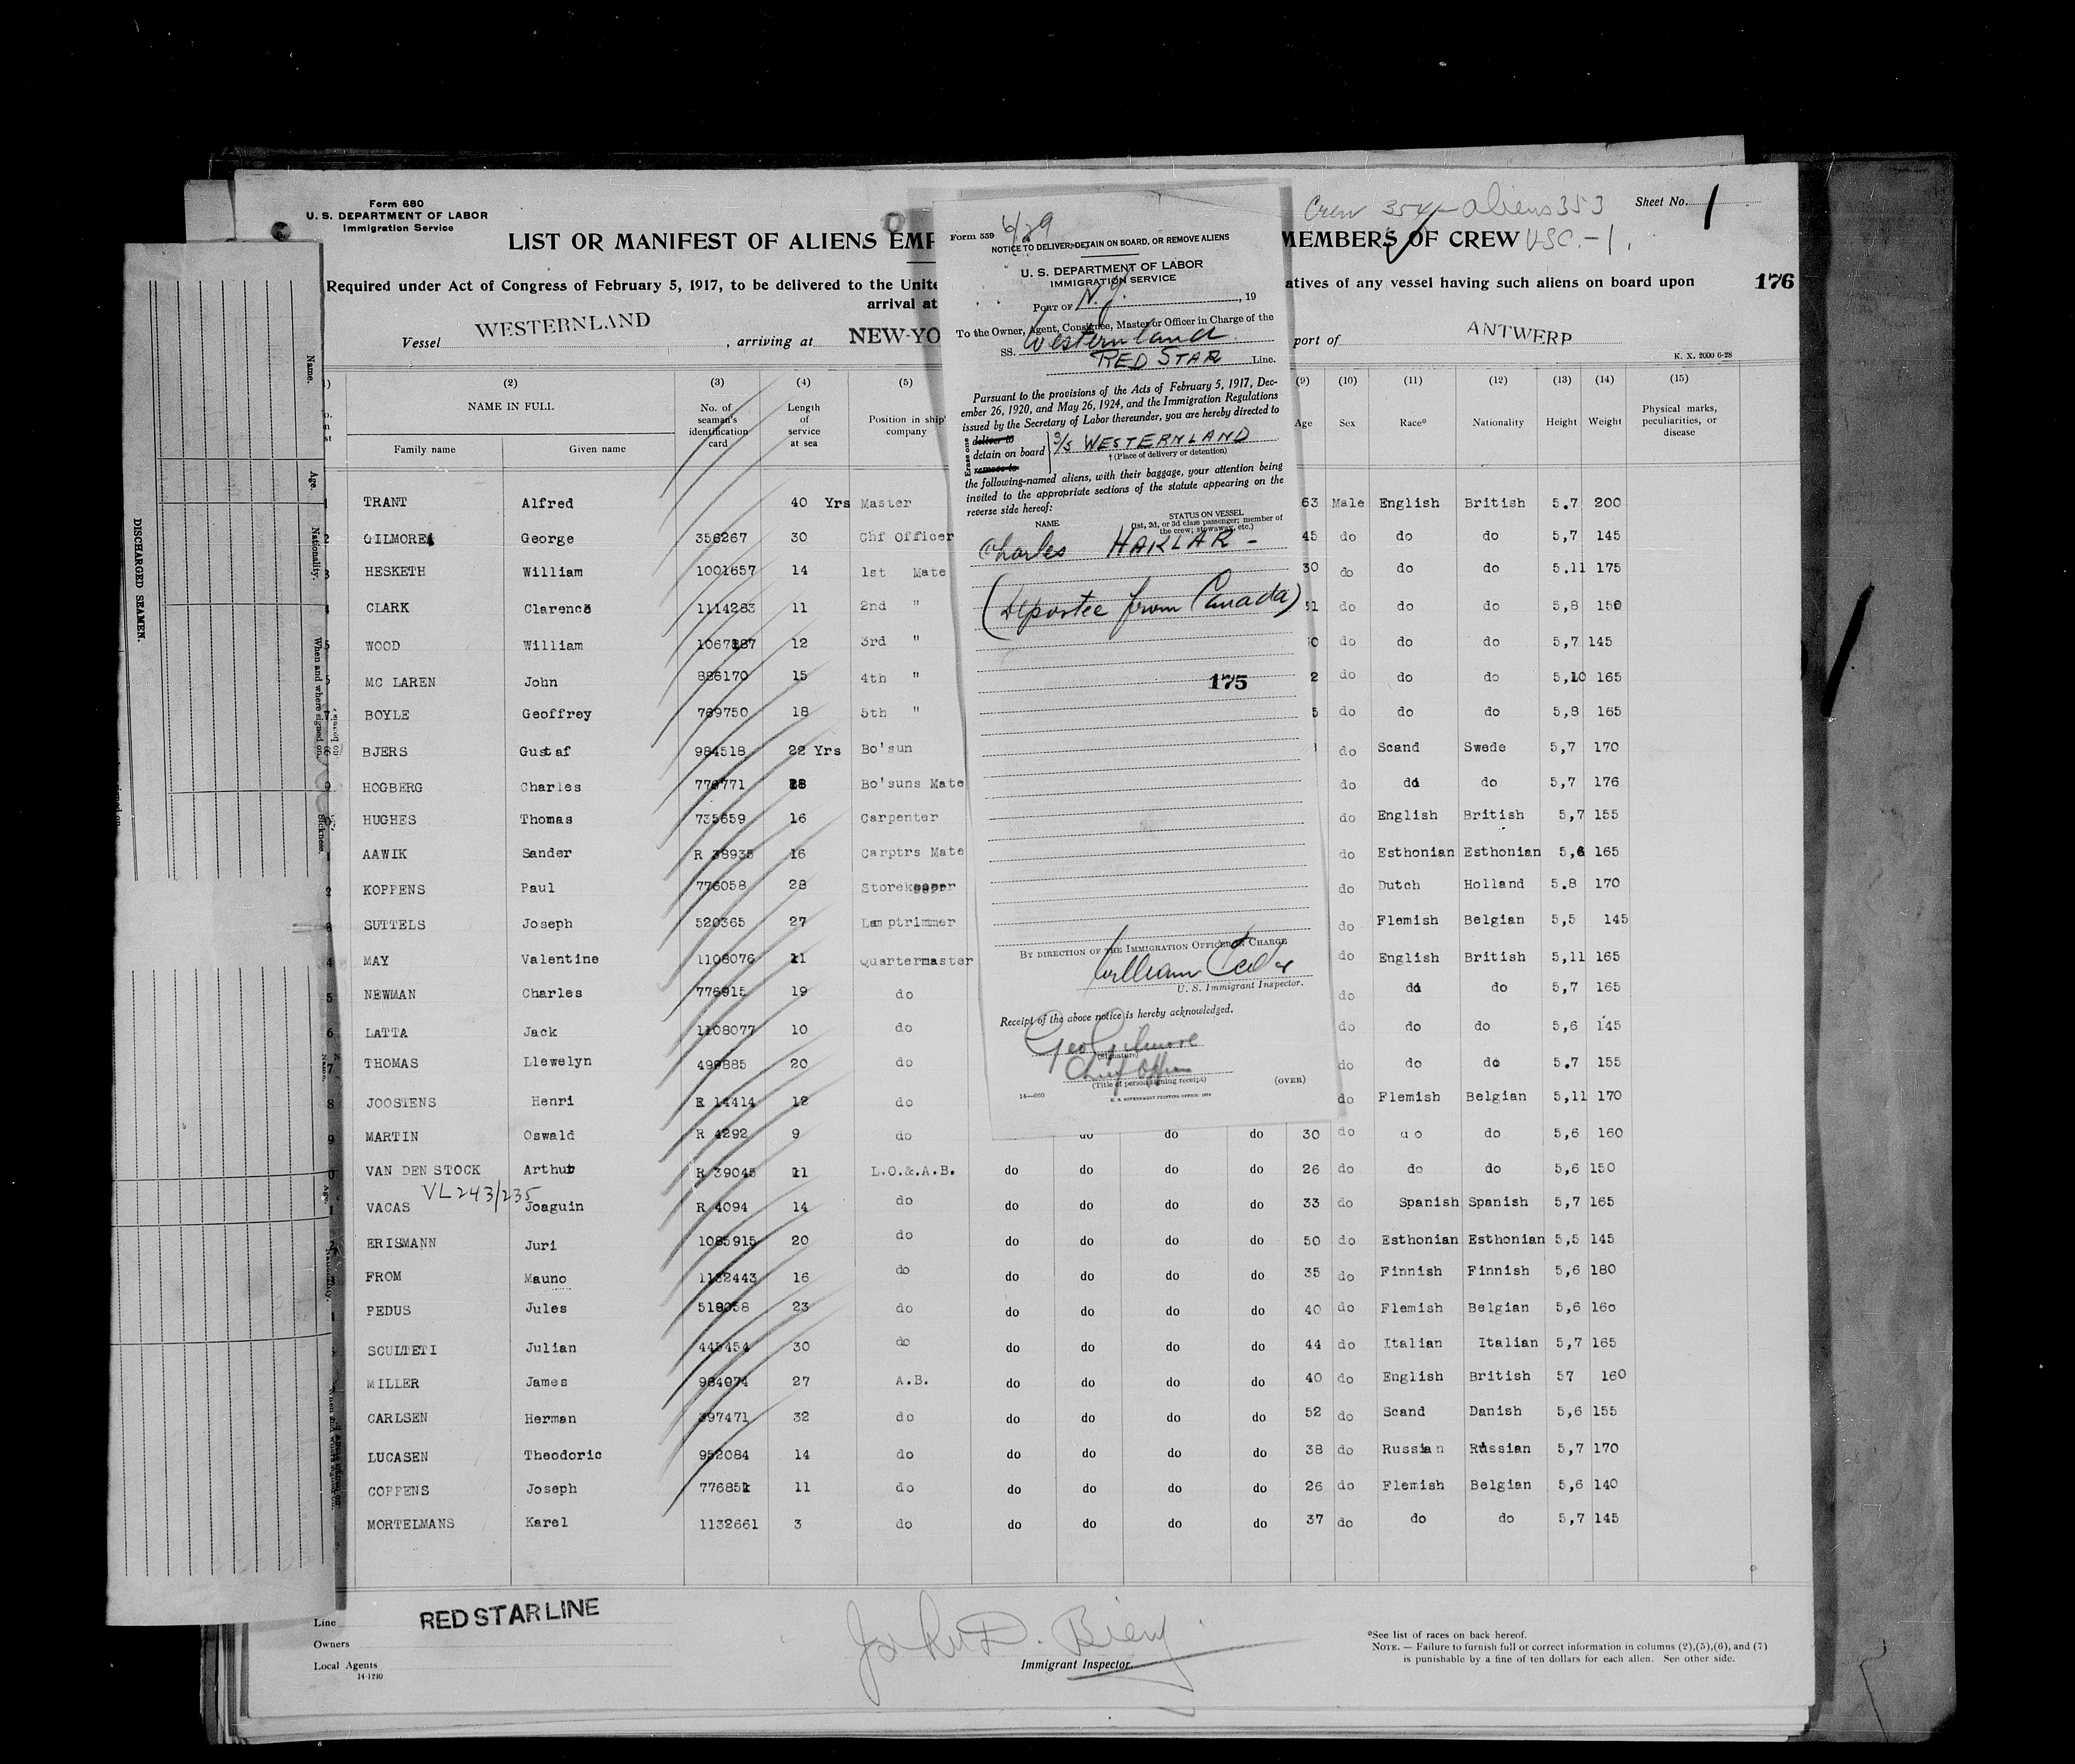 Form 680
U. S. DEPARTMENT OF LABOR
Immigration Service
Crew 354 - aliens 353
Sheet No. 1
LIST OR MANIFEST OF ALIENS EMP
MEMBERS OF CREW USC. - 1.
Required under Act of Congress of February 5, 1917, to be delivered to the Unite
atives of any vessel having such aliens on board upon
176
arrival at
Vessel WESTERNLAND, arriving at NEW-YO
port of ANTWERP
K. X. 2000 6-28
(2) (3) (4) (5) (9) (10) (11) (12) (13) (14) (15)
NAME IN FULL
Family name Given name
No. of seaman's identification card
Length of service at sea
Position in ship' company
Age Sex Race* Nationality Height Weight
Physical marks, peculiarities, or disease
TRANT Alfred 40 Yrs Master 63 Male English British 5.7 200
GILMORE George 356267 30 Chf Officer 45 do do do 5,7 145
HESKETH William 1001657 14 1st Mate 30 do do do 5.11 175
CLARK Clarence 1114283 11 2nd " 31 do do do 5,8 150
WOOD William 12 3rd " 0 do do do 5,7 145
MC LAREN John 886170 15 4th " 2 do do do 5,10 165
BOYLE Geoffrey 769750 18 5th " 5 do do do 5,8 165
BJERS Gustaf 984518 22 Yrs Bo'sun do Scand Swede 5,7 170
HOGBERG Charles 776771 Bo'suns Mate do do do 5,7 176
HUGHES Thomas 735659 16 Carpenter do English British 5,7 155
AAWIK Sander R 38935 16 Carptrs Mate do Esthonian Esthonian 5,6 165
KOPPENS Paul 776058 28 Storekeeper do Dutch Holland 5.8 170
SUTTELS Joseph 520365 27 Lamptrimmer do Flemish Belgian 5,5 145
MAY Valentine 1108076 11 Quartermaster do English British 5,11 165
NEWMAN Charles 776915 19 do do do do 5,7 165
LATTA Jack 1108077 10 do do do do 5,6 145
THOMAS Llewelyn 499885 20 do do do do 5.7 155
JOOSTENS Henri R 14414 12 do do Flemish Belgian 5,11 170
MARTIN Oswald R 4292 9 do do do do 30 do do do 5,6 160
VAN DEN STOCK Arthur R 39045 11 L.O.&.A.B. do do do do 26 do do do 5,6 150
VL 243/235
VACAS Joaguin R 4094 14 do do do do do 33 do Spanish Spanish 5,7 165
ERISMANN Juri 1085915 20 do do do do do 50 do Esthonian Esthonian 5,5 145
FROM Mauno 1132443 16 do do do do do 35 do Finnish Finnish 5,6 180
PEDUS Jules 518058 23 do do do do do 40 do Flemish Belgian 5,6 160
SCULTETI Julian 445454 30 do do do do do 44 do Italian Italian 5,7 165
MILLER James 984074 27 A.B. do do do do 40 do English British 57 160
CARLSEN Herman 397471 32 do do do do do 52 do Scand Danish 5,6 155
LUCASEN Theodoric 952084 14 do do do do do 38 do Russian Russian 5,7 170
COPPENS Joseph 776851 11 do do do do do 26 do Flemish Belgian 5,6 140
MORTELMANS Karel 1132661 3 do do do do do 37 do do do 5,7 145
Line RED STAR LINE
Owners
Local Agents
14-1240
John D.
Immigrant Inspector.
*See list of races on back hereof.
NOTE. — Failure to furnish full or correct information in columns (2),(5),(6), and (7)
is punishable by a fine of ten dollars for each alien. See other side.
6/29
Form 559
NOTICE TO DELIVER, DETAIN ON BOARD, OR REMOVE ALIENS
U. S. DEPARTMENT OF LABOR
IMMIGRATION SERVICE
PORT OF N.Y., 19
To the Owner, Agent, Consignee, Master or Officer in Charge of the
SS. Westernland
RED STAR Line.
Pursuant to the provisions of the Acts of February 5, 1917, Dec-
ember 26, 1920, and May 26, 1924, and the Immigration Regulations
issued by the Secretary of Labor thereunder, you are hereby directed to
Erase one
deliver to
detain on board S/S WESTERNLAND
remove to
† (Place of delivery or detention)
the following-named aliens, with their baggage, your attention being
invited to the appropriate sections of the statute appearing on the
reverse side hereof:
NAME
STATUS ON VESSEL
(1st, 2d, or 3d class passenger; member of
the crew; stowaway, etc.)
Charles HAKLAR -
(Deportee from Canada)
175
BY DIRECTION OF THE IMMIGRATION OFFICER IN CHARGE
William
U. S. Immigrant Inspector.
Receipt of the above notice is hereby acknowledged.
Geo Gilmore
(Signature)
Chief Officer
(Title of person signing receipt)
(OVER)
14—660
U. S. GOVERNMENT PRINTING OFFICE
DISCHARGED SEAMEN.
Name.
Age.
Nationality.
When and where signed on.
Sickness.